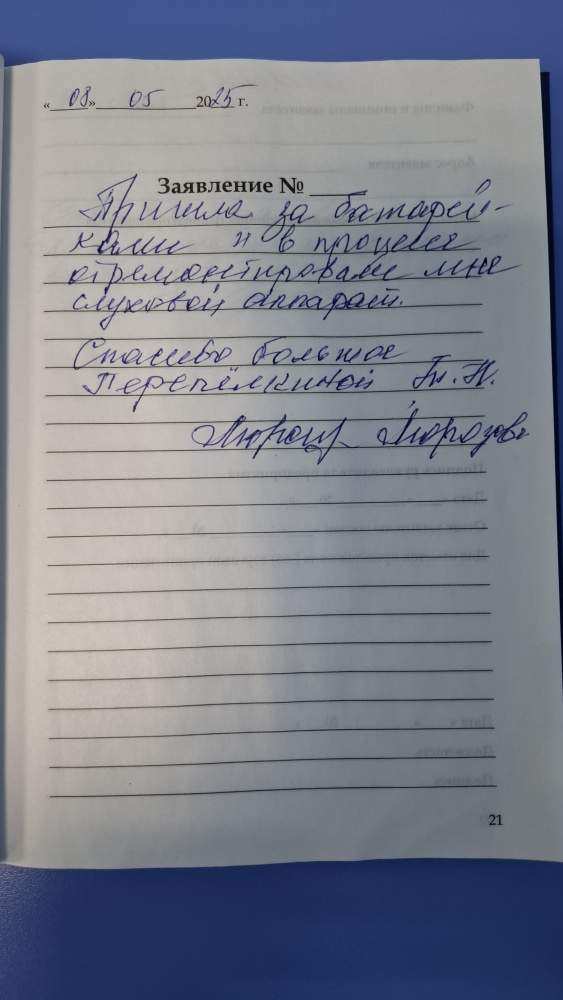 «08» 05 2025 г.
Заявление №
Пришла за батарей-
ками и в процессе
отремонтировали мне
слуховой аппарат.
Спасибо большое
Перепёлкиной Т.Н.
Морозова
21